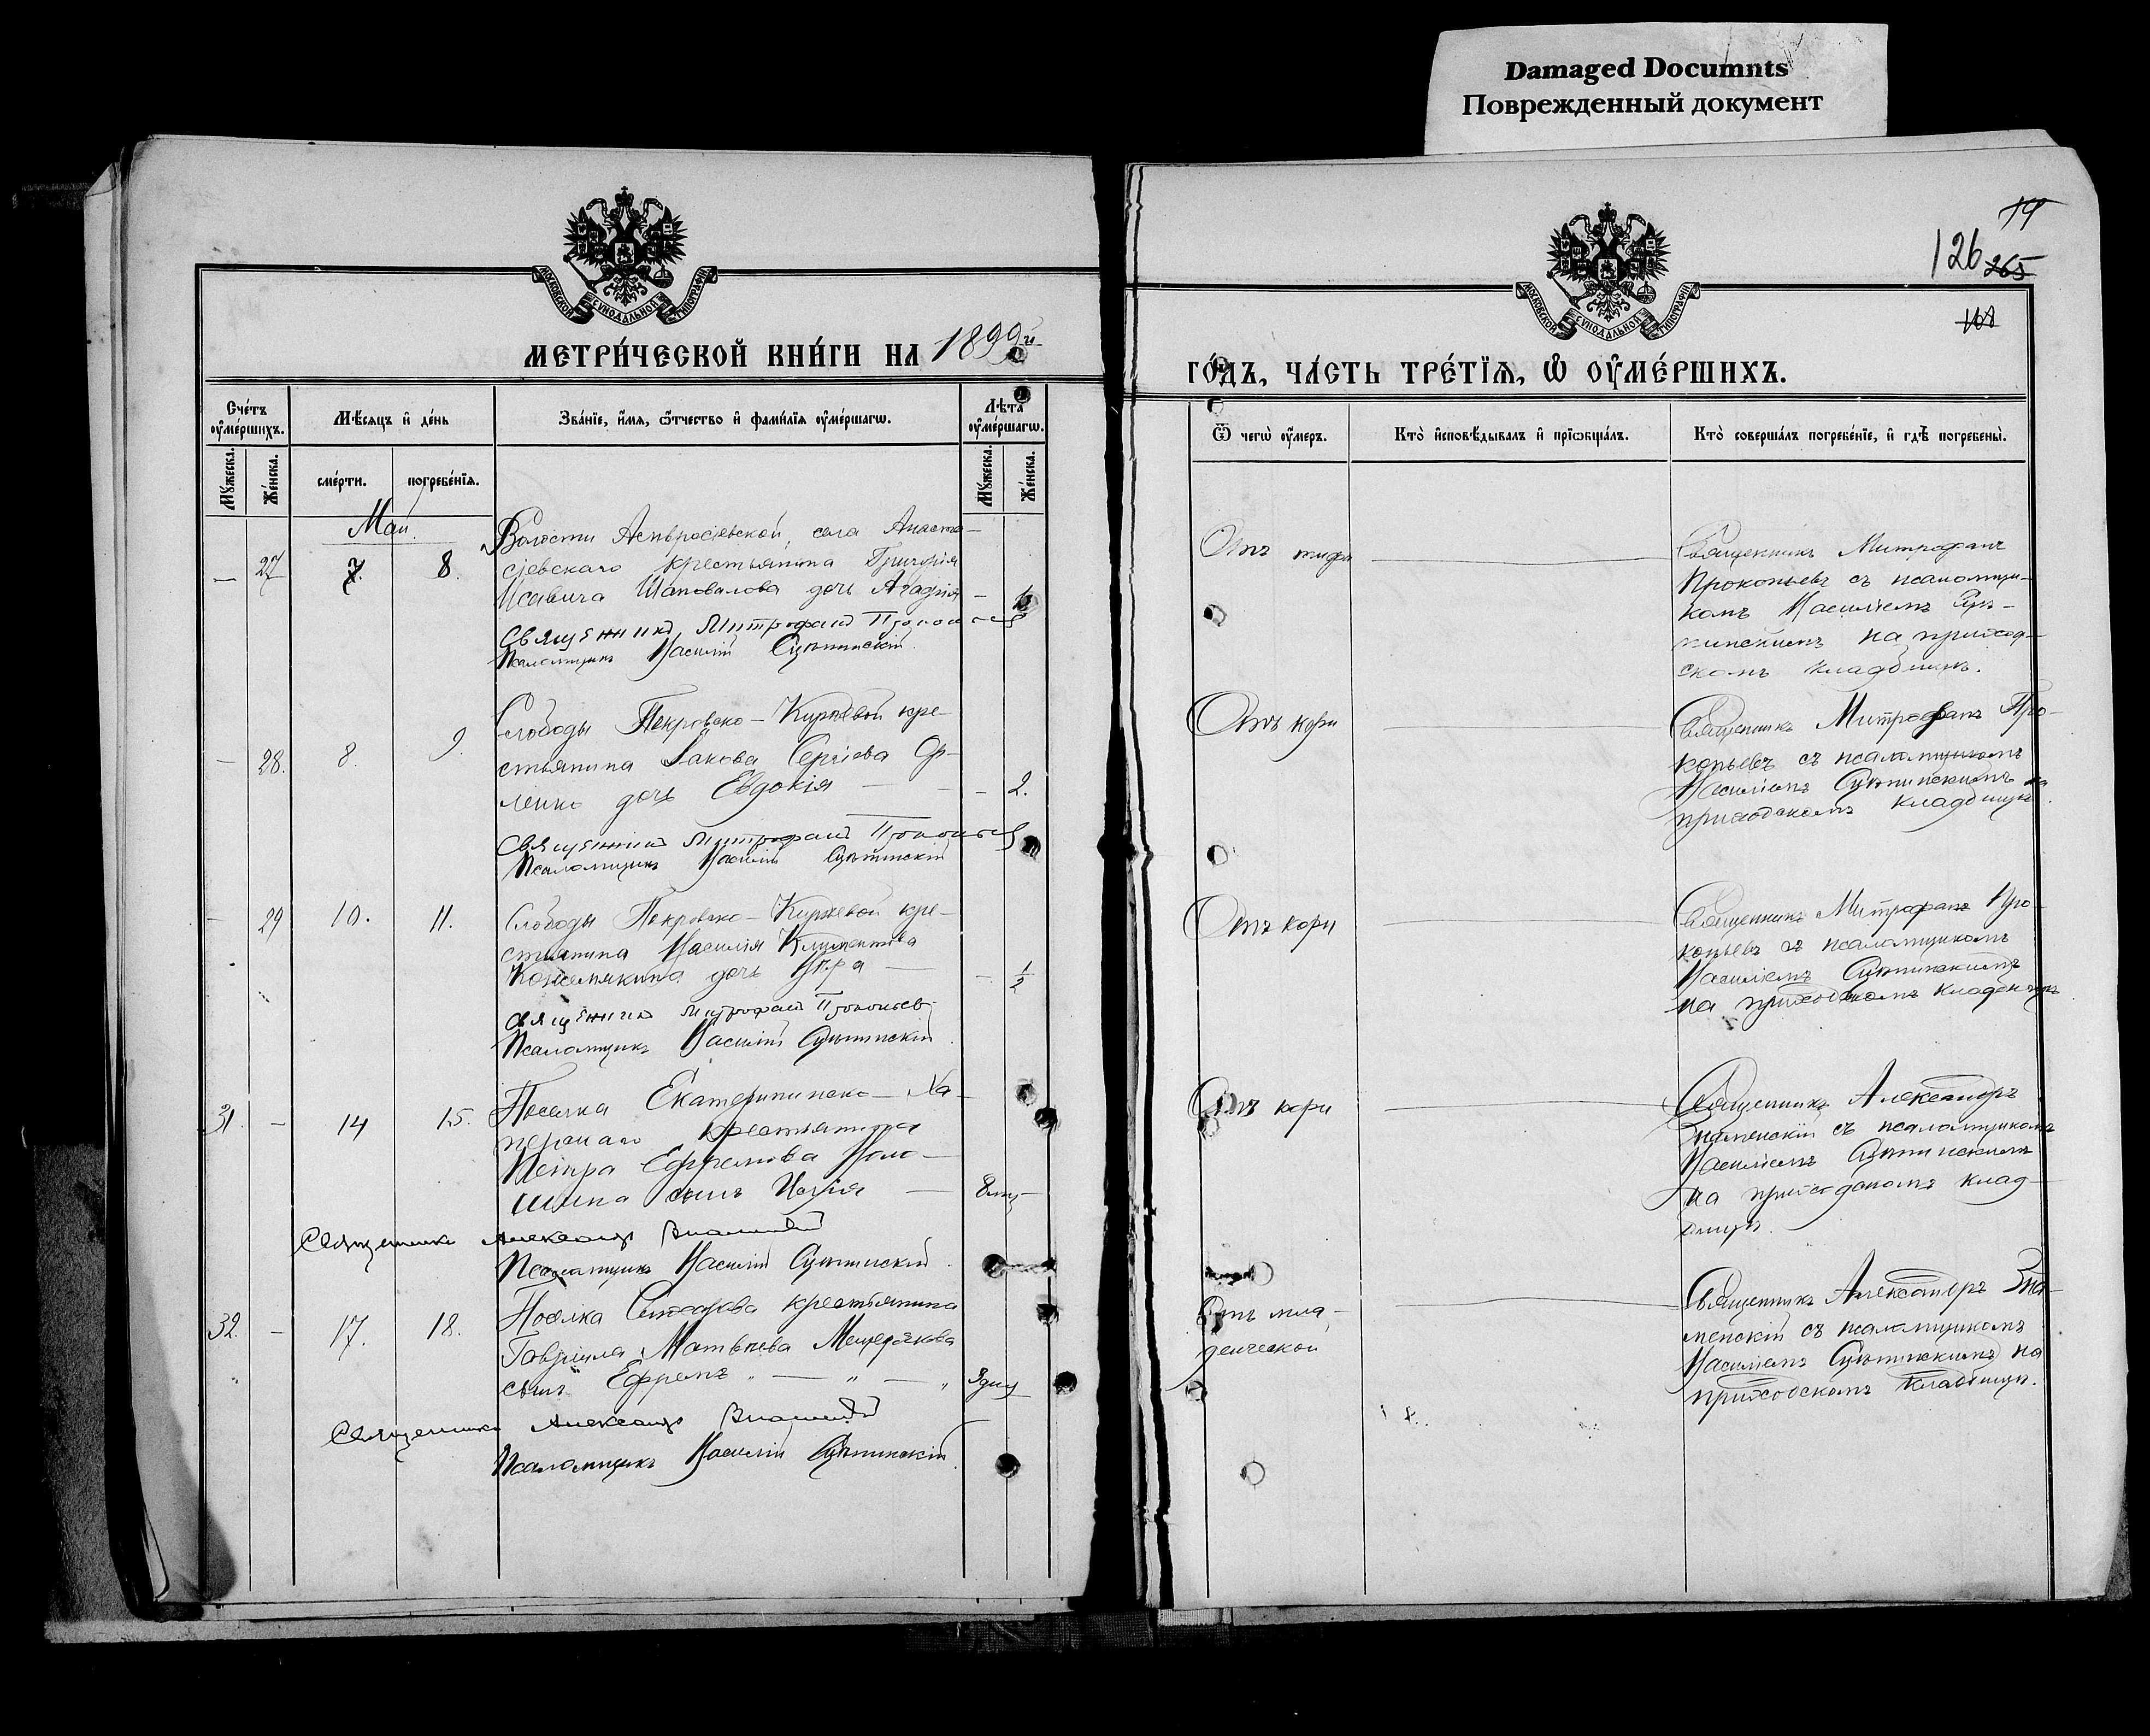 Damaged Documnts
Поврежденный документ
МОСКОВСКОЙ СѴНОДАЛЬНОЙ ТИПОГРАФІИ
МЕТРИ́ЧЕСКОЙ КНИ́ГИ НА 1899й
Сче́тъ оу҆ме́ршихъ.
Мѣ́сяцъ и҆ де́нь
Зва́нїе, и҆́мя, ѻ҆́тчество и҆ фами́лїя оу҆ме́ршагѡ.
Лѣ́та оу҆ме́ршагѡ.
Мꙋ́жеска.
Же́нска.
сме́рти.
погребе́нїя.
Мꙋ́жеска.
Же́нска.
Май.
— 27 7. 8.
Волости Амвросіевской, села Анаста-
сіевскаго крестьянина Григорія
Исавича Шаповалова дочь Агафія —
Священникъ Митрофанъ Прокопьев
Псаломщикъ Василій
— 28. 8. 9.
Слободы Покровско-Киреевой кре-
стьянина Іакова Сергіева Ор-
ленко дочь Евдокія — — 2.
Священникъ Митрофанъ Прокопьев
Псаломщикъ Василій
— 29 10. 11.
Слободы Покровско-Киреевой кре-
стьянина Василія Климентова
Кожемякина дочь — — 1/2
Священникъ Митрофанъ Прокопьев
Псаломщикъ Василій
31. — 14 15.
Поселка Екатериниско-Ха-
крестьянина
Петра Ефремова Воло-
шина сынъ Илія — 8 мц —
Священникъ Александр Знаменскій
Псаломщикъ Василій
32. — 17. 18.
Поселка крестьянина
Гавріила Матвѣева Мещерякова
сынъ Ефремъ „ — „ — „ 3 дни
Священникъ Александр Знаменскій
Псаломщикъ Василій
МОСКОВСКОЙ СѴНОДАЛЬНОЙ ТИПОГРАФІИ
126 265
108
ГО́ДЪ, ЧА́СТЬ ТРЕ́ТЇѦ, Ѡ҆ ОУ҆МЕ́РШИХЪ.
Ѿ чегѡ̀ оу҆́меръ.
Кто̀ и҆сповѣ́дывалъ и҆ прїѡбща́лъ.
Кто̀ соверша́лъ погребе́нїе, и҆ гдѣ̀ погребены̀.
Отъ тифа —
Священникъ Митрофанъ
Прокопьевъ съ псаломщи-
комъ Василіемъ
на приход-
скомъ кладбищѣ.
Отъ кори —
Священникъ Митрофанъ Про-
копьевъ съ псаломщикомъ
Василіемъ на
приходскомъ кладбищѣ.
Отъ кори —
Священникъ Митрофанъ Про-
копьевъ съ псаломщикомъ
Василіемъ
на приходскомъ кладбищѣ
Отъ кори —
Священникъ Александръ
Знаменскій съ псаломщикомъ
Василіемъ
на приходскомъ клад-
бищѣ.
Отъ мла-
денческой —
Священникъ Александръ Зна-
менскій съ псаломщикомъ
Василіемъ на
приходскомъ кладбищѣ.